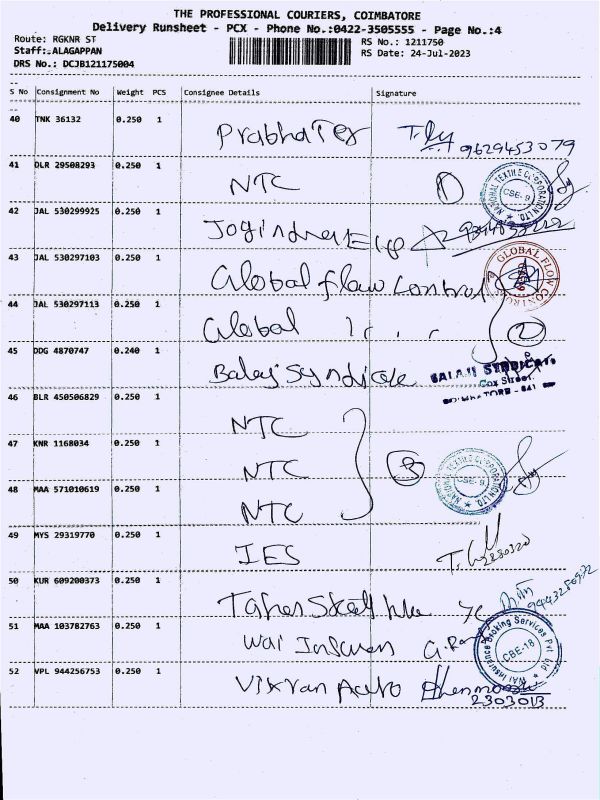 THE PROFESSIONAL COURIERS, COIMBATORE
Delivery Runsheet - PCX - Phone No.:0422-3505555 - Page No.:4
Route: RGKNR ST
RS No.: 1211750
Staff:.ALAGAPPAN
RS Date: 24-Jul-2023
DRS No.: DCJB121175004
S No Consignment No Weight PCS Consignee Details Signature
40 TNK 36132 0.250 1 Prabha Tex 9629453079
41 DLR 29508293 0.250 1 NTC 1 NATIONAL TEXTILE CORPORATION LTD. CBE-9
42 JAL 530299925 0.250 1
43 JAL 530297103 0.250 1 Global flow Control GLOBAL FLOW CONTROL
44 JAL 530297113 0.250 1 Global 2
45 DDG 4870747 0.240 1 Balaji Syndicate BALAJI SYNDICATE
Cox Street,
COIMBATORE - 641
46 BLR 450506829 0.250 1 NTC
47 KNR 1168034 0.250 1 NTC 3 NATIONAL TEXTILE CORPORATION LTD. CBE-9
48 MAA 571010619 0.250 1 NTC
49 MYS 29319770 0.250 1 IES
50 KUR 609200373 0.250 1
51 MAA 103782763 0.250 1 Wai Insuran Wai Insurance Broking Services Pvt Ltd CBE-18
52 VPL 944256753 0.250 1 Vikran Auto